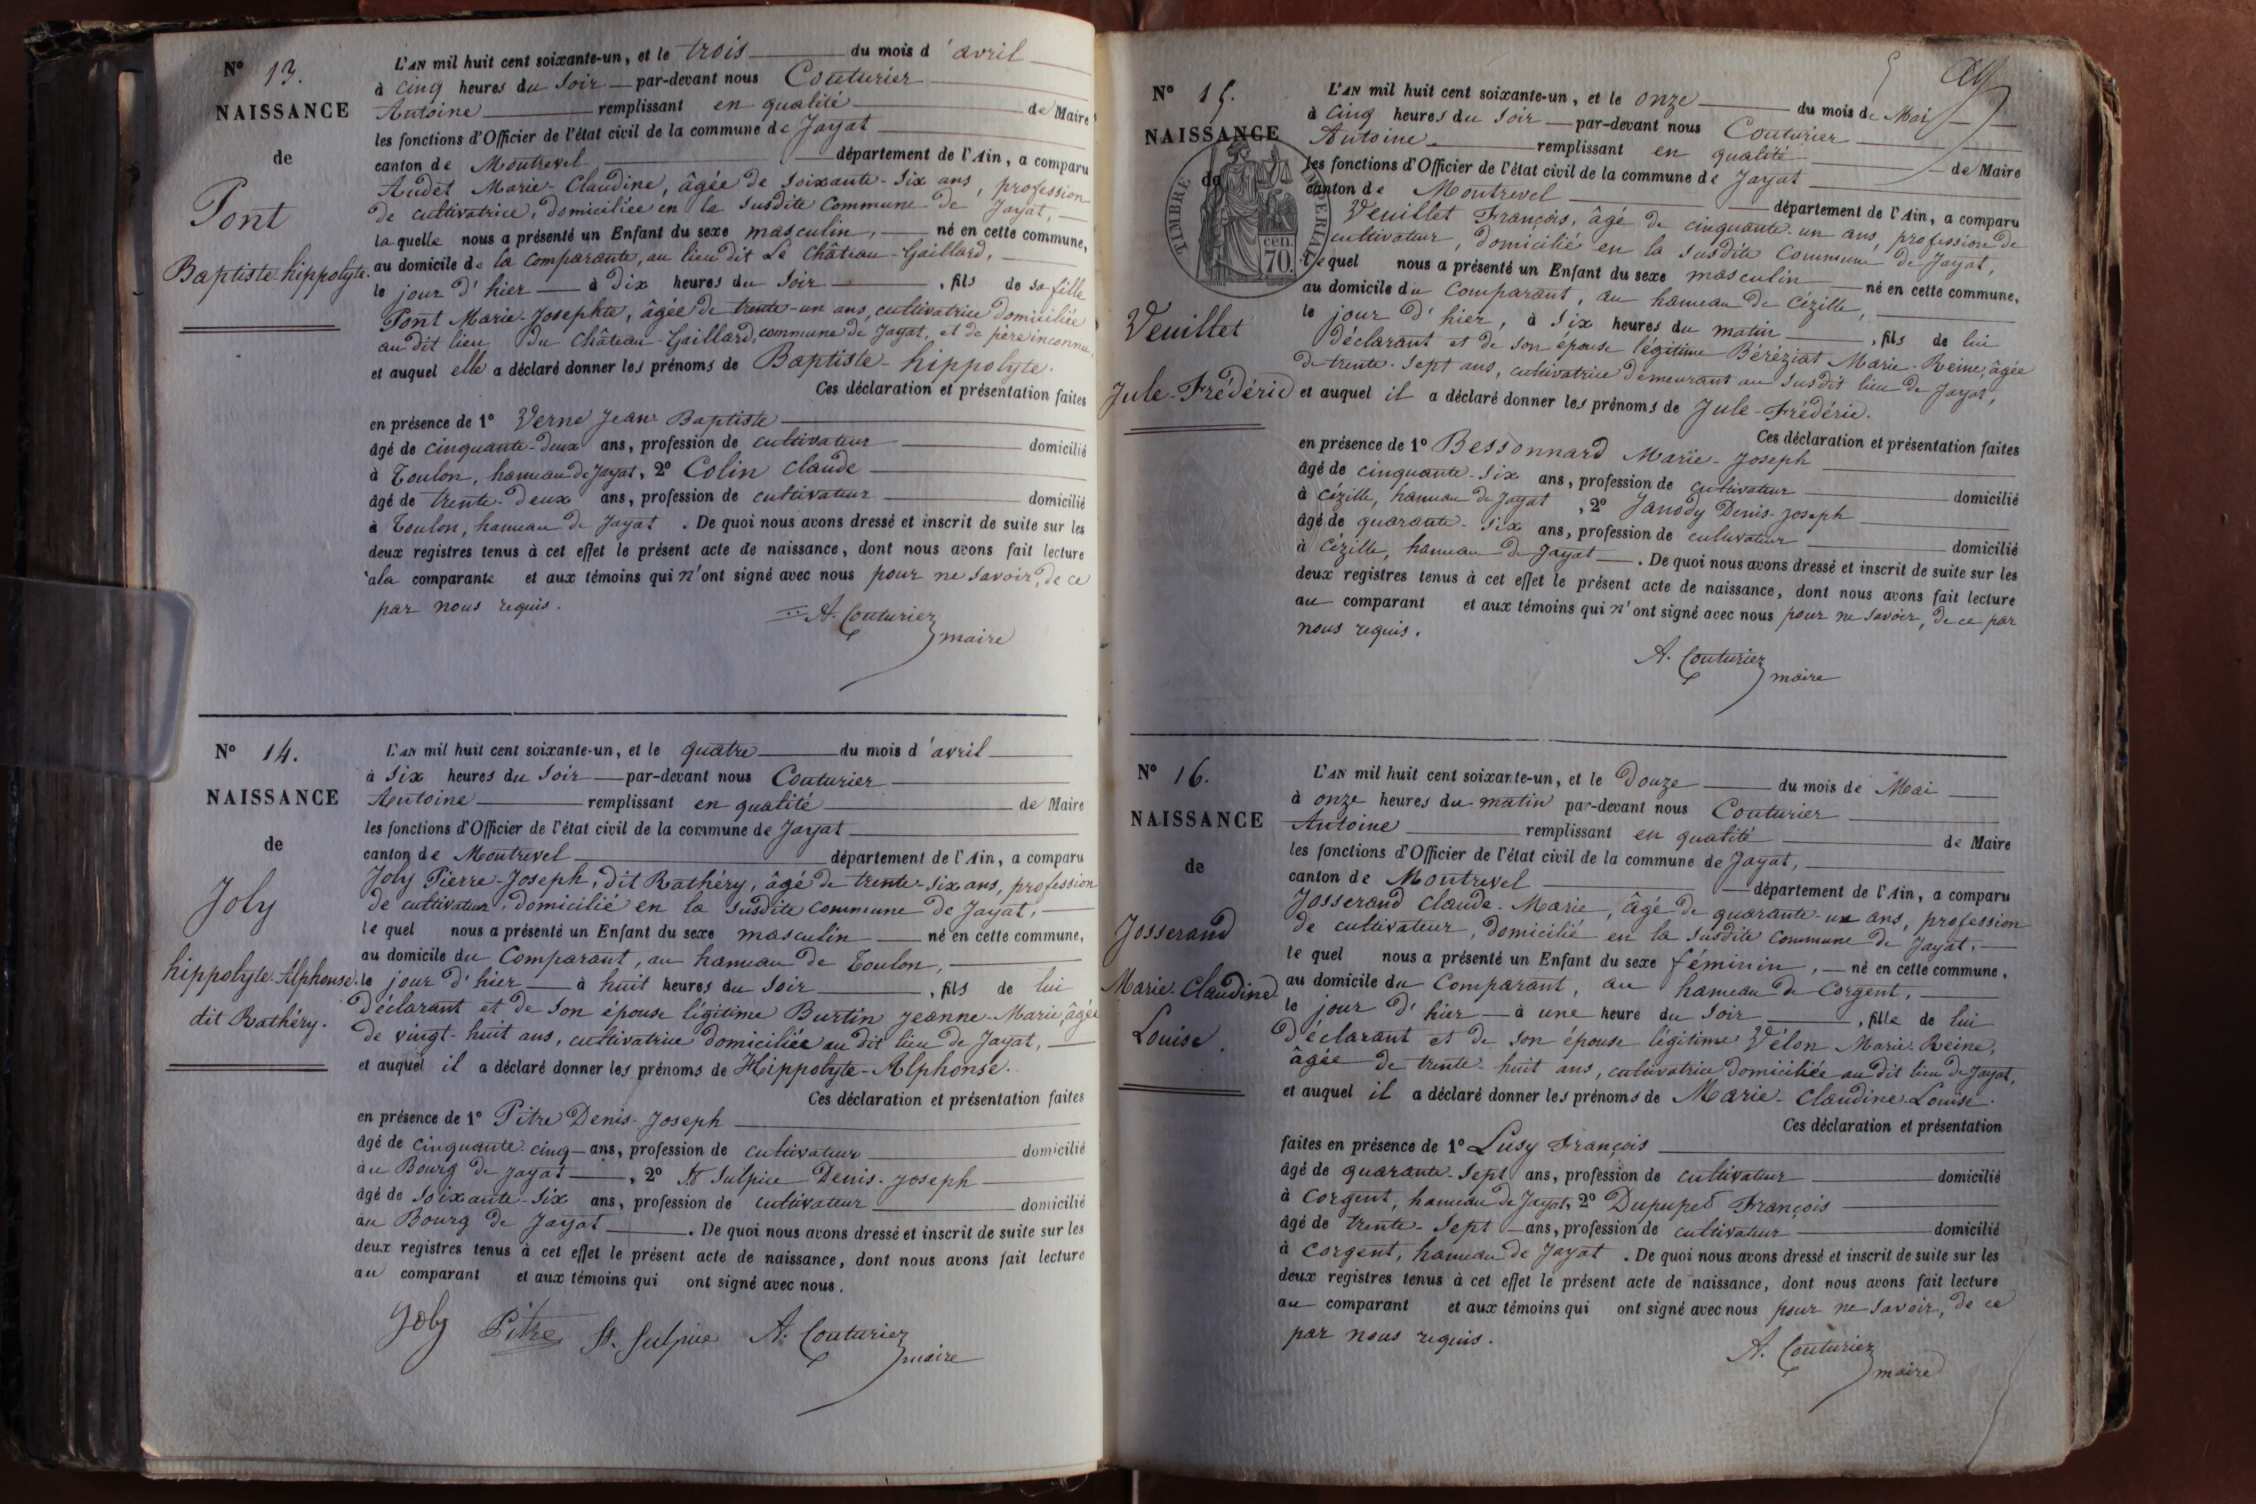 N° 13.
NAISSANCE
de
Pont
Baptiste-hippolyte.
L'AN mil huit cent soixante-un, et le trois du mois d'avril
à cinq heures du soir par-devant nous Couturier
Antoine remplissant en qualité de Maire
les fonctions d'Officier de l'état civil de la commune de Jayat
canton de Montrevel département de l'Ain, a comparu
Audet Marie-Claudine, âgée de soixante-six ans, profession
de cultivatrice, domiciliée en la susdite commune de Jayat,
laquelle nous a présenté un Enfant du sexe masculin, né en cette commune,
au domicile de la comparante, au lieu dit Le Château-Gaillard,
le jour d'hier à dix heures du soir, fils de sa fille
Pont Marie-Josephte, âgée de trente-un ans, cultivatrice domiciliée
au dit lieu du Château-Gaillard, commune de Jayat, et de père inconnu,
et auquel elle a déclaré donner les prénoms de Baptiste-hippolyte.
Ces déclaration et présentation faites
en présence de 1° Verne Jean Baptiste
âgé de cinquante-deux ans, profession de cultivateur domicilié
à Toulon, hameau de Jayat, 2° Colin Claude
âgé de trente-deux ans, profession de cultivateur domicilié
à Toulon, hameau de Jayat. De quoi nous avons dressé et inscrit de suite sur les
deux registres tenus à cet effet le présent acte de naissance, dont nous avons fait lecture
à la comparante et aux témoins qui n'ont signé avec nous pour ne savoir, de ce
par nous requis.
A. Couturier
maire
N° 14.
NAISSANCE
de
Joly
hippolyte-Alphonse.
dit Rathéry.
L'AN mil huit cent soixante-un, et le quatre du mois d'avril
à six heures du soir par-devant nous Couturier
Antoine remplissant en qualité de Maire
les fonctions d'Officier de l'état civil de la commune de Jayat
canton de Montrevel département de l'Ain, a comparu
Joly Pierre-Joseph, dit Rathéry, âgé de trente-six ans, profession
de cultivateur, domicilié en la susdite commune de Jayat,
lequel nous a présenté un Enfant du sexe masculin né en cette commune,
au domicile du Comparant, au hameau de Toulon,
le jour d'hier à huit heures du soir, fils de lui
déclarant et de son épouse légitime Burtin Jeanne-Marie, âgée
de vingt-huit ans, cultivatrice domiciliée au dit lieu de Jayat,
et auquel il a déclaré donner les prénoms de Hippolyte-Alphonse.
Ces déclaration et présentation faites
en présence de 1° Pitre Denis-Joseph
âgé de cinquante-cinq ans, profession de cultivateur domicilié
au Bourg de Jayat, 2° St Sulpice Denis-Joseph
âgé de soixante-six ans, profession de cultivateur domicilié
au Bourg de Jayat. De quoi nous avons dressé et inscrit de suite sur les
deux registres tenus à cet effet le présent acte de naissance, dont nous avons fait lecture
au comparant et aux témoins qui ont signé avec nous.
Joly Pitre St. Sulpice A. Couturier
maire
N° 15.
NAISSANCE
de
TIMBRE IMPERIAL
cen.
70.
Veuillet
Jule-Frédéric
L'AN mil huit cent soixante-un, et le onze du mois de Mai
à cinq heures du soir par-devant nous Couturier
Antoine remplissant en qualité de Maire
les fonctions d'Officier de l'état civil de la commune de Jayat
canton de Montrevel département de l'Ain, a comparu
Veuillet François, âgé de cinquante-un ans, profession de
cultivateur, domicilié en la susdite commune de Jayat,
lequel nous a présenté un Enfant du sexe masculin né en cette commune,
au domicile du comparant, au hameau de Cézille,
le jour d'hier, à six heures du matin, fils de lui
déclarant et de son épouse légitime Béréziat Marie-Reine, âgée
de trente-sept ans, cultivatrice demeurant au susdit lieu de Jayat,
et auquel il a déclaré donner les prénoms de Jule-Frédéric.
Ces déclaration et présentation faites
en présence de 1° Bessonnard Marie-Joseph
âgé de cinquante-six ans, profession de cultivateur domicilié
à Cézille, hameau de Jayat, 2° Janody Denis-Joseph
âgé de quarante-six ans, profession de cultivateur domicilié
à Cézille, hameau de Jayat. De quoi nous avons dressé et inscrit de suite sur les
deux registres tenus à cet effet le présent acte de naissance, dont nous avons fait lecture
au comparant et aux témoins qui n'ont signé avec nous pour ne savoir, de ce par
nous requis.
A. Couturier
maire
N° 16.
NAISSANCE
de
Josserand
Marie-Claudine
Louise.
L'AN mil huit cent soixante-un, et le Douze du mois de Mai
à onze heures du matin par-devant nous Couturier
Antoine remplissant en qualité de Maire
les fonctions d'Officier de l'état civil de la commune de Jayat,
canton de Montrevel département de l'Ain, a comparu
Josserand Claude-Marie, âgé de quarante-un ans, profession
de cultivateur, domicilié en la susdite commune de Jayat,
lequel nous a présenté un Enfant du sexe féminin, né en cette commune,
au domicile du Comparant, au hameau de Corgent,
le jour d'hier à une heure du soir, fille de lui
déclarant et de son épouse légitime Vélon Marie-Reine,
âgée de trente-huit ans, cultivatrice domiciliée au dit lieu de Jayat,
et auquel il a déclaré donner les prénoms de Marie-Claudine-Louise.
Ces déclaration et présentation
faites en présence de 1° Lusy François
âgé de quarante-sept ans, profession de cultivateur domicilié
à Corgent, hameau de Jayat, 2° Dupupet François
âgé de trente-sept ans, profession de cultivateur domicilié
à Corgent, hameau de Jayat. De quoi nous avons dressé et inscrit de suite sur les
deux registres tenus à cet effet le présent acte de naissance, dont nous avons fait lecture
au comparant et aux témoins qui ont signé avec nous pour ne savoir, de ce
par nous requis.
A. Couturier
maire